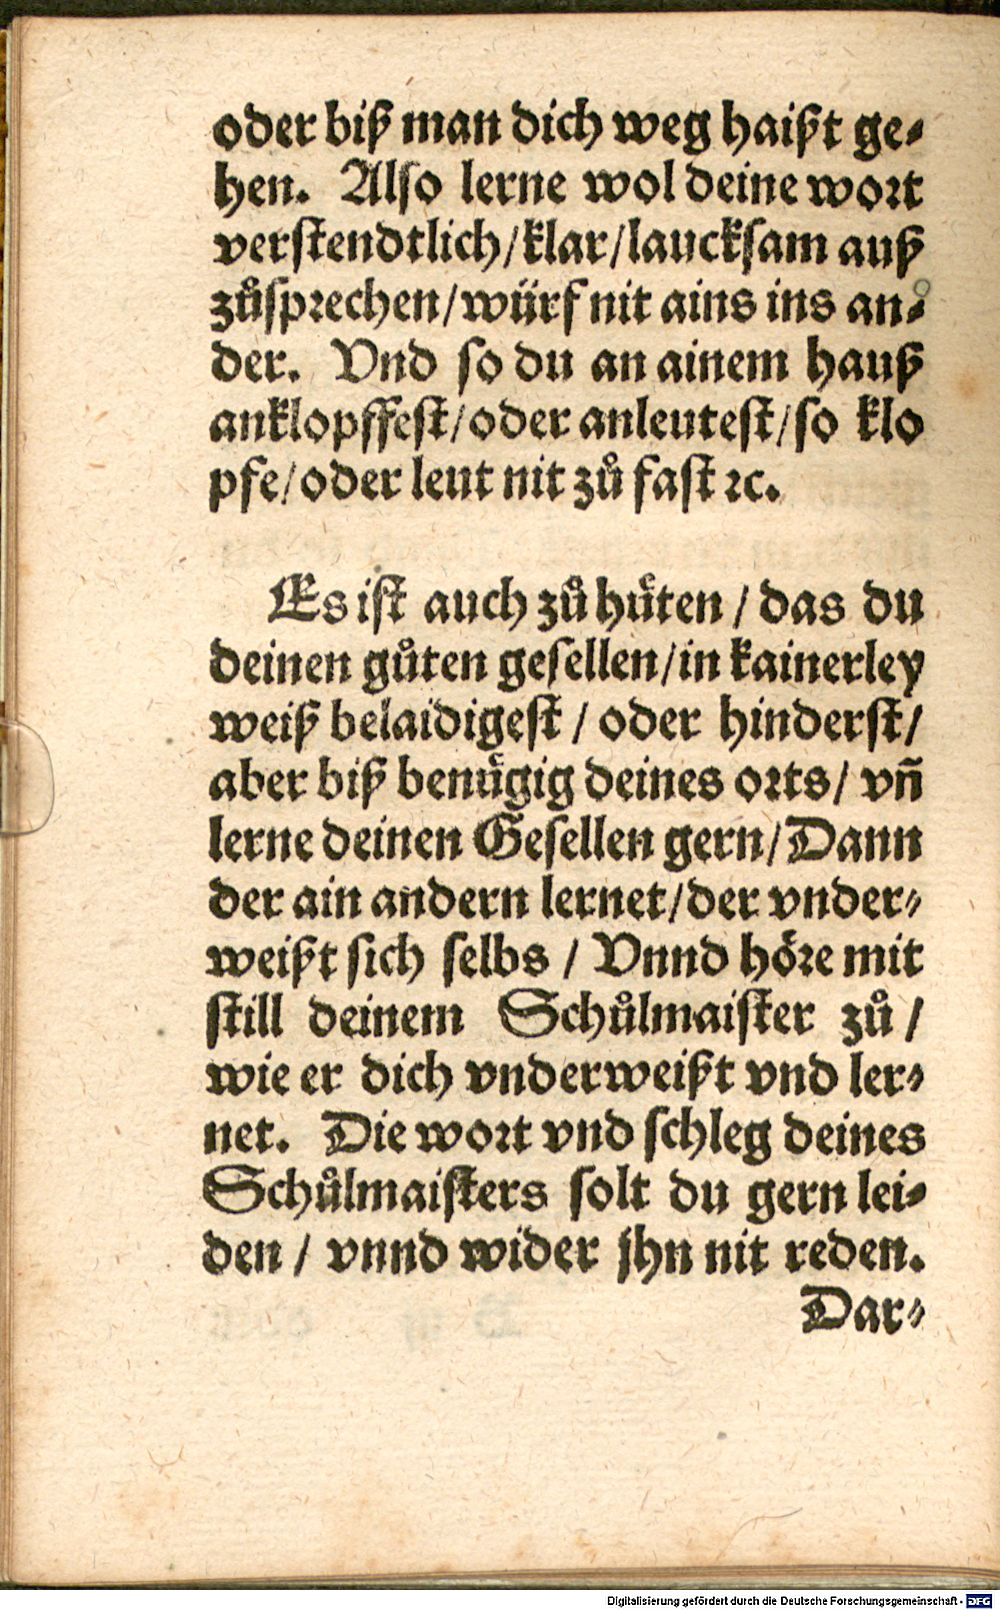 oder biß man dich weg haißt ge-
hen. Also lerne wol deine wort
verstendtlich/klar/laucksam auß
zůsprechen/würf nit ains ins an-
der. Vnd so du an ainem hauß
anklopffest/oder anleutest/so klo
pfe/oder leut nit zů fast ꝛc.
Es ist auch zů hüten / das du
deinen gůten gesellen/in kainerley
weiß belaidigest / oder hinderst/
aber biß benügig deines orts/ vñ
lerne deinen Gesellen gern/Dann
der ain andern lernet/der vnder-
weißt sich selbs / Vnnd höre mit
still deinem Schůlmaister zů /
wie er dich vnderweißt vnd ler-
net. Die wort vnd schleg deines
Schůlmaisters solt du gern lei-
den / vnnd wider jhn nit reden.
Dar-
Digitalisierung gefördert durch die Deutsche Forschungsgemeinschaft - DFG